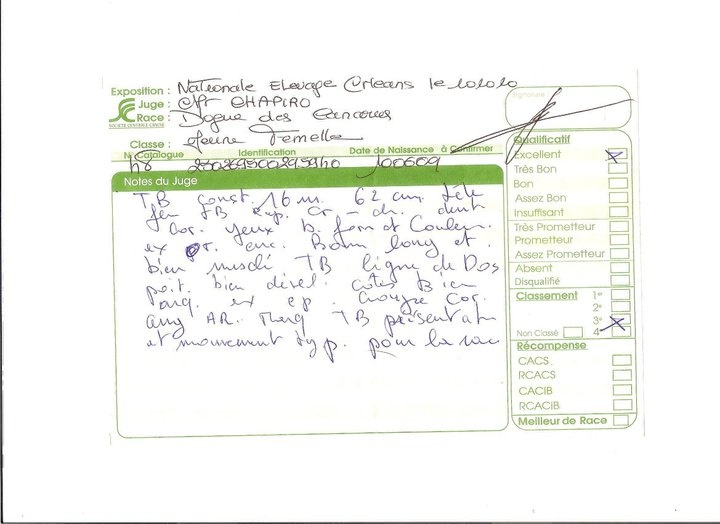 Exposition : Nationale Elevage Orleans le 101010
Juge : CHAPIRO
Race : Dogue des Canaries
SOCIETE CENTRALE CANINE
Signature
Classe : Jeune Femelle
N° Catalogue Identification Date de Naissance à Confirmer
48 100609
Notes du Juge
TB const. 16 m. 62 cm. tête
fem TB Rap. Cr - ch. dent
Cor. yeux b. form et Couleur.
ex or. enc. Bon long et
bien musclé TB ligne de Dos
poit. bien dével. côtes Bien
arq. ex ep. Croupe Cor.
ang AR. TB présentat
et mouvement typ. pour la race
Qualificatif
Excellent X
Très Bon
Bon
Assez Bon
Insuffisant
Très Prometteur
Prometteur
Assez Prometteur
Absent
Disqualifié
Classement 1er
2e
3e
Non Classé 4e X
Récompense
CACS
RCACS
CACIB
RCACIB
Meilleur de Race